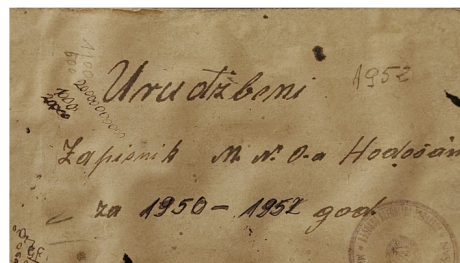 Urudžbeni 1952
Zapisnik M. N. O-a Hodošan
za 1950 - 1952 god.